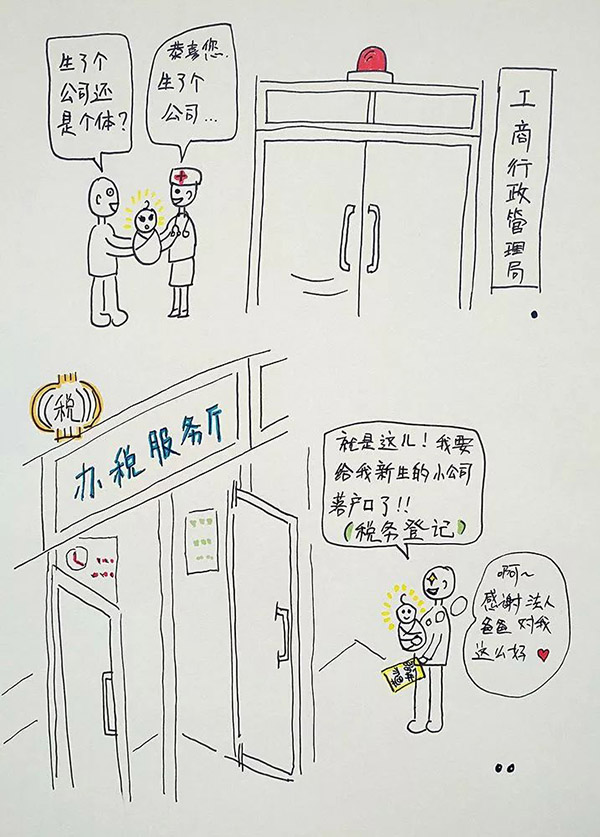 生了个
公司还
是个体？
恭喜您..
生了个
公司...
工商行政管理局
税
办税服务厅
就是这儿！我要
给我新生的小公司
落户口了!!
（税务登记）
啊~
感谢法人
爸爸对我
这么好